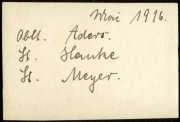 Mai 1916.
Oblt. Aders.
Lt. Hanke
Lt. Meyer.